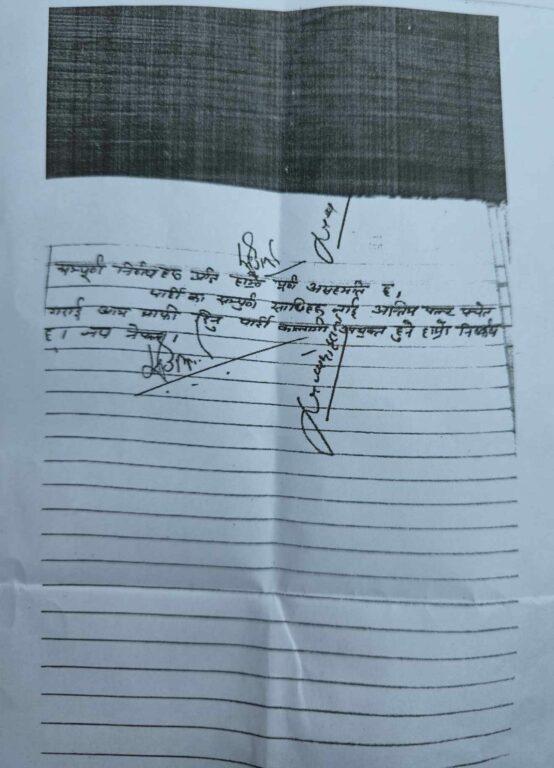 सम्पूर्ण निर्णयहरु प्रति हाम्रो पूर्ण असहमति छ।
पार्टी का सम्पूर्ण साथिहरु लाई अन्तिम पल्ट सचेत
गराई आम माफी दिनु पार्टी उपयुक्त हुने हाम्रो निष्कर्ष
छ। जय नेपाल।